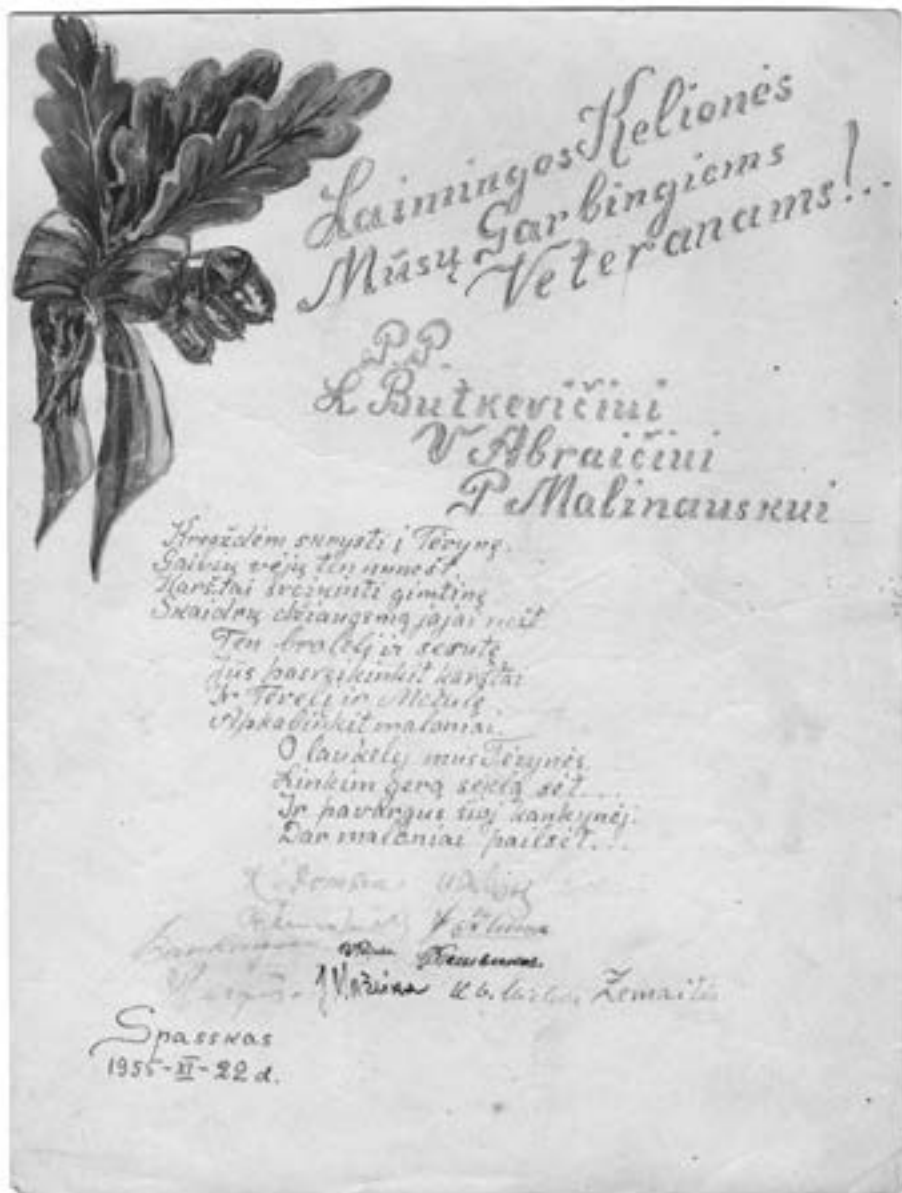 Laimingos Kelionės
Mūsų Garbingiems
Veteranams!..
P.P.
L Butkevičiui
V Abraičiui
P Malinauskui
Kregždėm skrysti į Tėvynę.
Gaivių vėjų ten nunešt
Karštai sveikinti gimtinę
Skaidrų džiaugsmą jajai nešt
Ten brolelį ir sesutę
Jūs pasveikinkit karštai
Ir Tėvelį ir Močiutę
Apkabinkit maloniai.
O laukelį mus Tėvynės
Linkim gerą sėklą sėt...
Ir pavargus šioj kankynėj
Dar maloniai pailsėt...
Žemaitis
Spasskas
1955-XI-22 d.